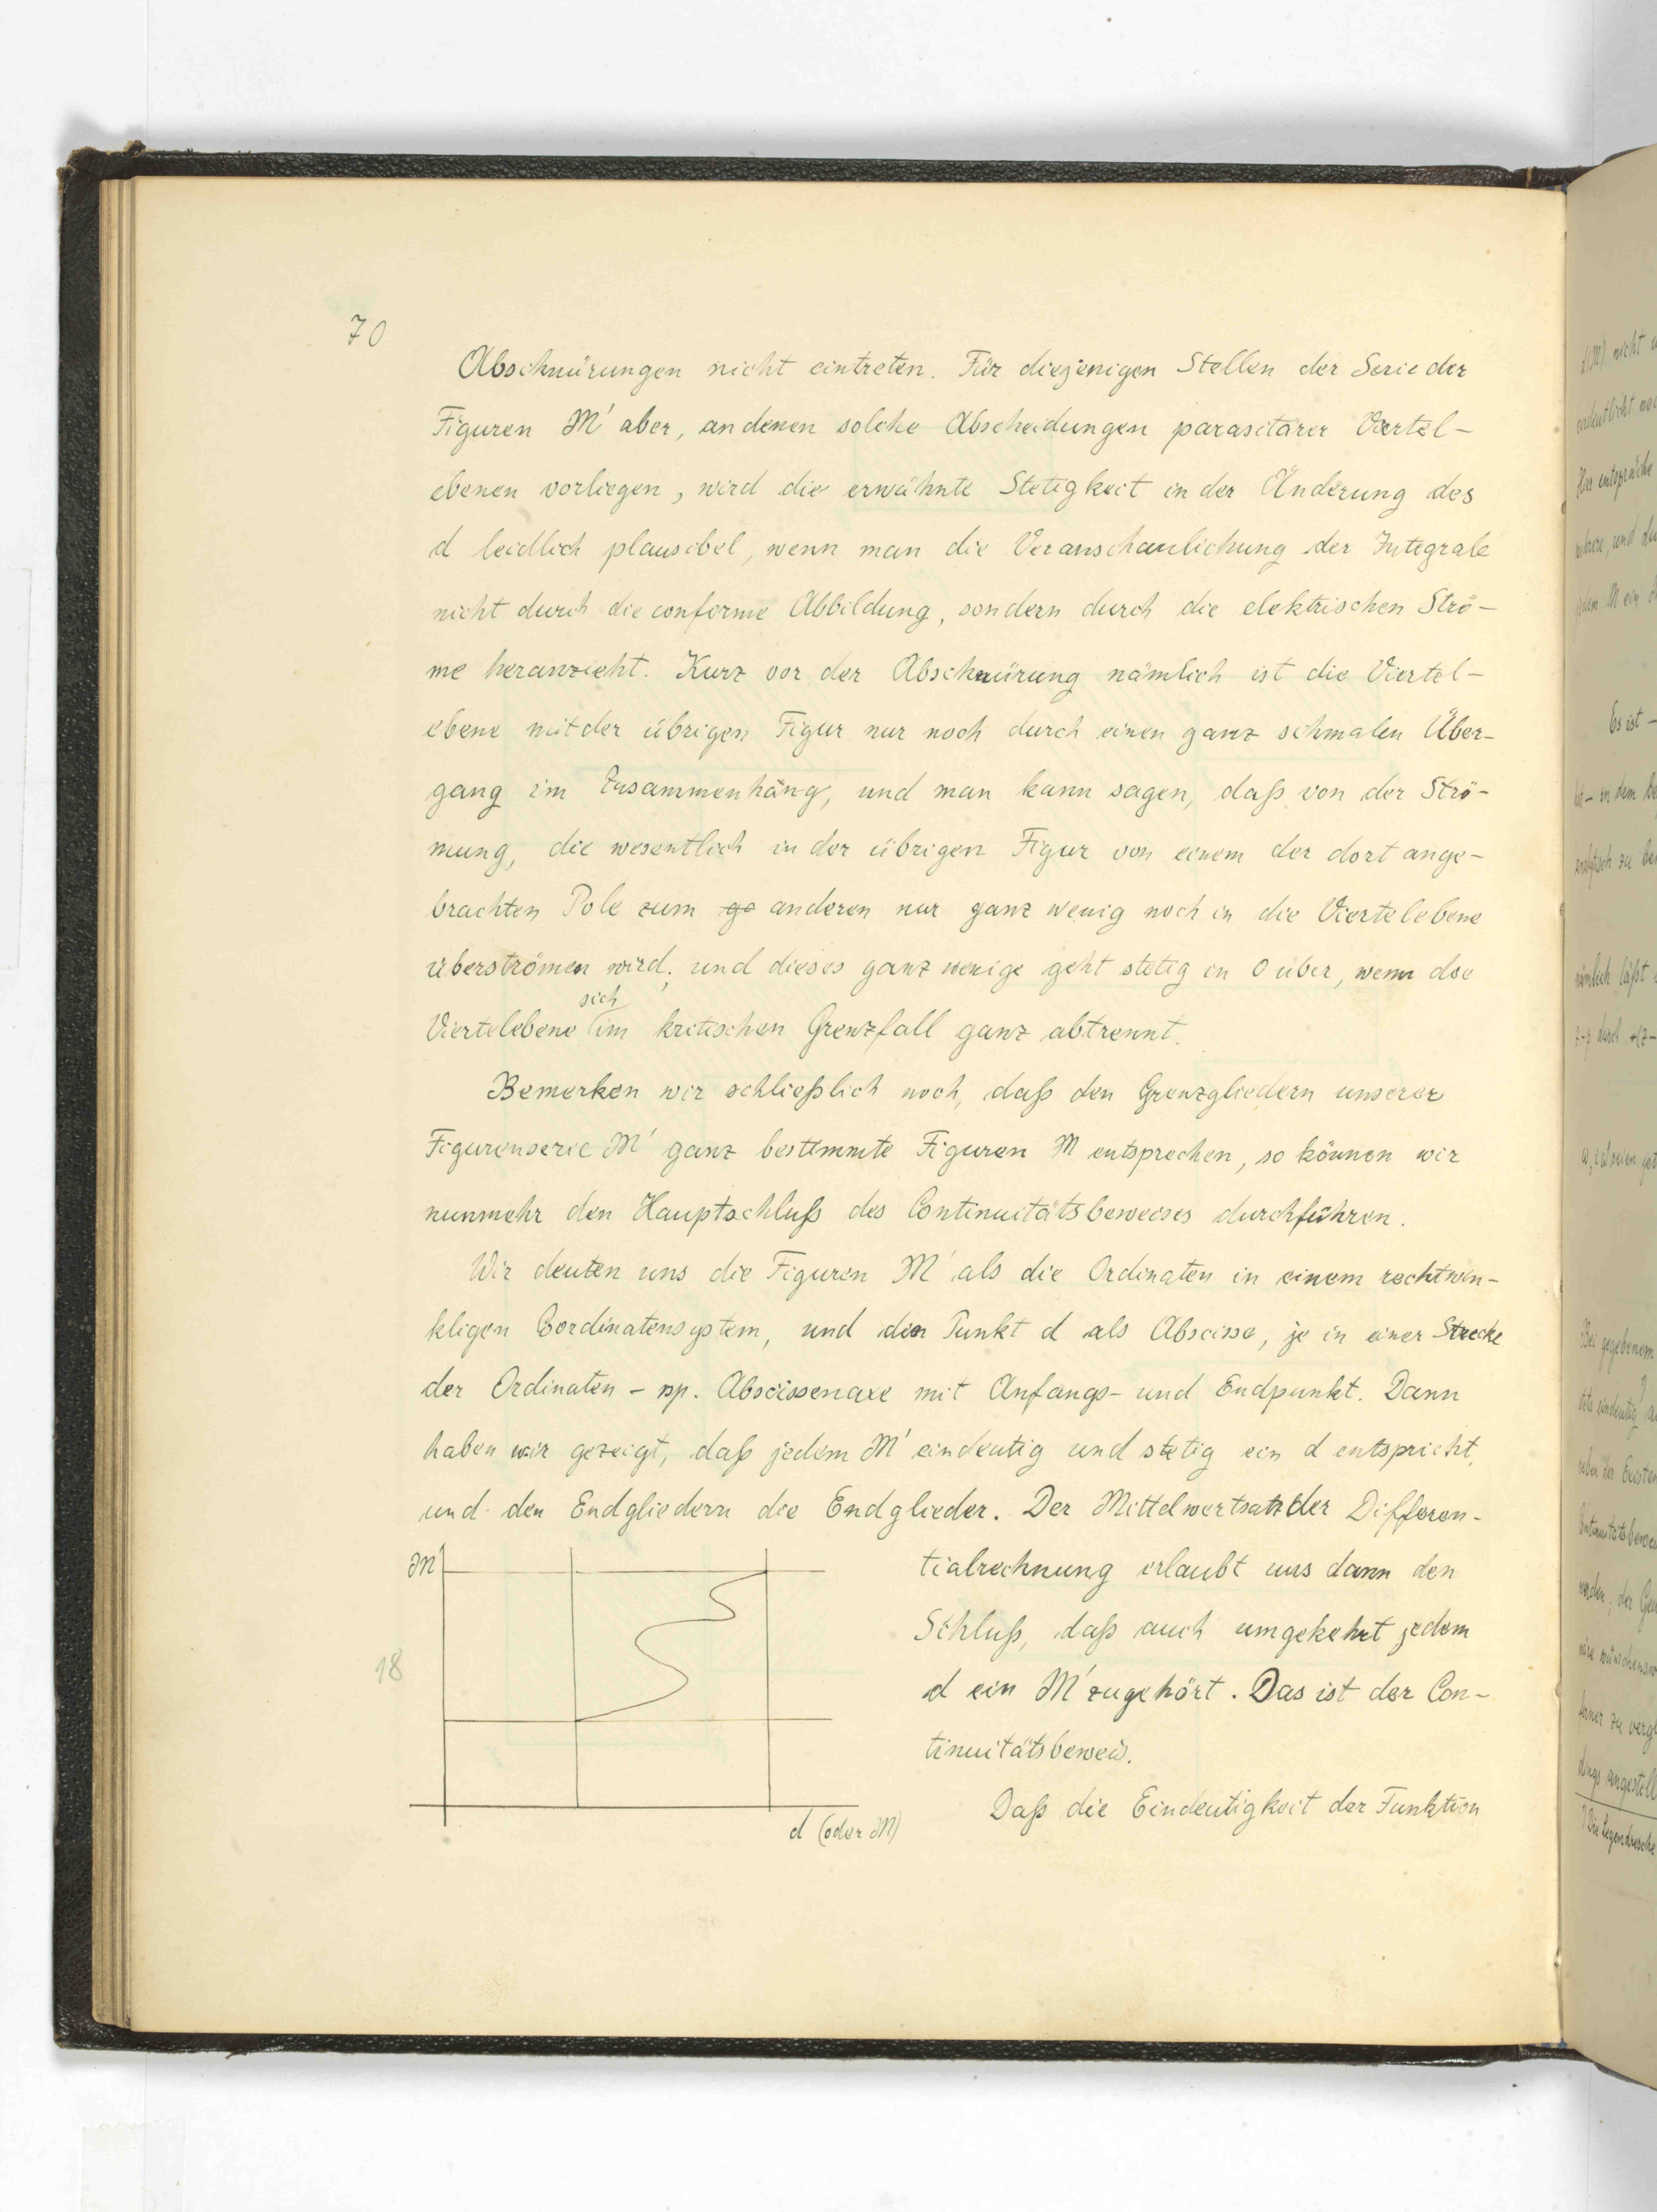 70
Abschnürungen nicht eintreten. Für diejenigen Stellen der Serie der
Figuren M' aber, an denen solche Abscheidungen parasitärer Viertel-
ebenen vorliegen, wird die erwähnte Stetigkeit in der Änderung des
d leidlich plausibel, wenn man die Veranschaulichung der Integrale
nicht durch die conforme Abbildung, sondern durch die elektrischen Strö-
me heranzieht. Kurz vor der Abschnürung nämlich ist die Viertel-
ebene mit der übrigen Figur nur noch durch einen ganz schmalen Über-
gang im Zusammenhang, und man kann sagen, daß von der Strö-
mung, die wesentlich in der übrigen Figur von einem der dort ange-
brachten Pole zum ge anderen nur ganz wenig noch in die Viertelebene
überströmen wird; und dieses ganz wenige geht stetig in 0 über, wenn die
sich
Viertelebene im kritischen Grenzfall ganz abtrennt.
Bemerken wir schließlich noch, daß den Grenzgliedern unserer
Figurenserie M' ganz bestimmte Figuren M entsprechen, so können wir
nunmehr den Hauptschluß des Continuitätsbeweises durchführen.
Wir deuten uns die Figuren M' als die Ordinaten in einem rechtwin-
kligen Coordinatensystem, und den Punkt d als Abscisse, je in einer Strecke
der Ordinaten- rsp. Abscissenaxe mit Anfangs- und Endpunkt. Dann
haben wir gezeigt, daß jedem M' eindeutig und stetig ein d entspricht,
und den Endgliedern die Endglieder. Der Mittelwertsatz der Differen-
tialrechnung erlaubt uns dann den
Schluß, daß auch umgekehrt jedem
d ein M' zugehört. Das ist der Con-
tinuitätsbeweis.
Daß die Eindeutigkeit der Funktion
M'
18
d (oder M)